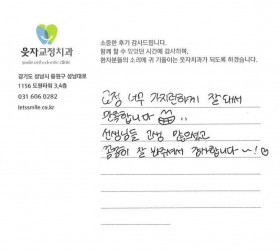 웃자교정치과
smile orthodontic clinic
경기도 성남시 중원구 성남대로
1156 도원타워 3,4층
031 606 0282
letssmile.co.kr
소중한 후기 감사드립니다.
함께 할 수 있었던 시간에 감사하며,
환자분들의 소리에 귀 기울이는 웃자치과가 되도록 하겠습니다.
교정 너무 가지런하게 잘 돼서
만족합니다
선생님들 고생 많으셨고
꼼꼼히 잘 봐주셔서 감사합니다~!